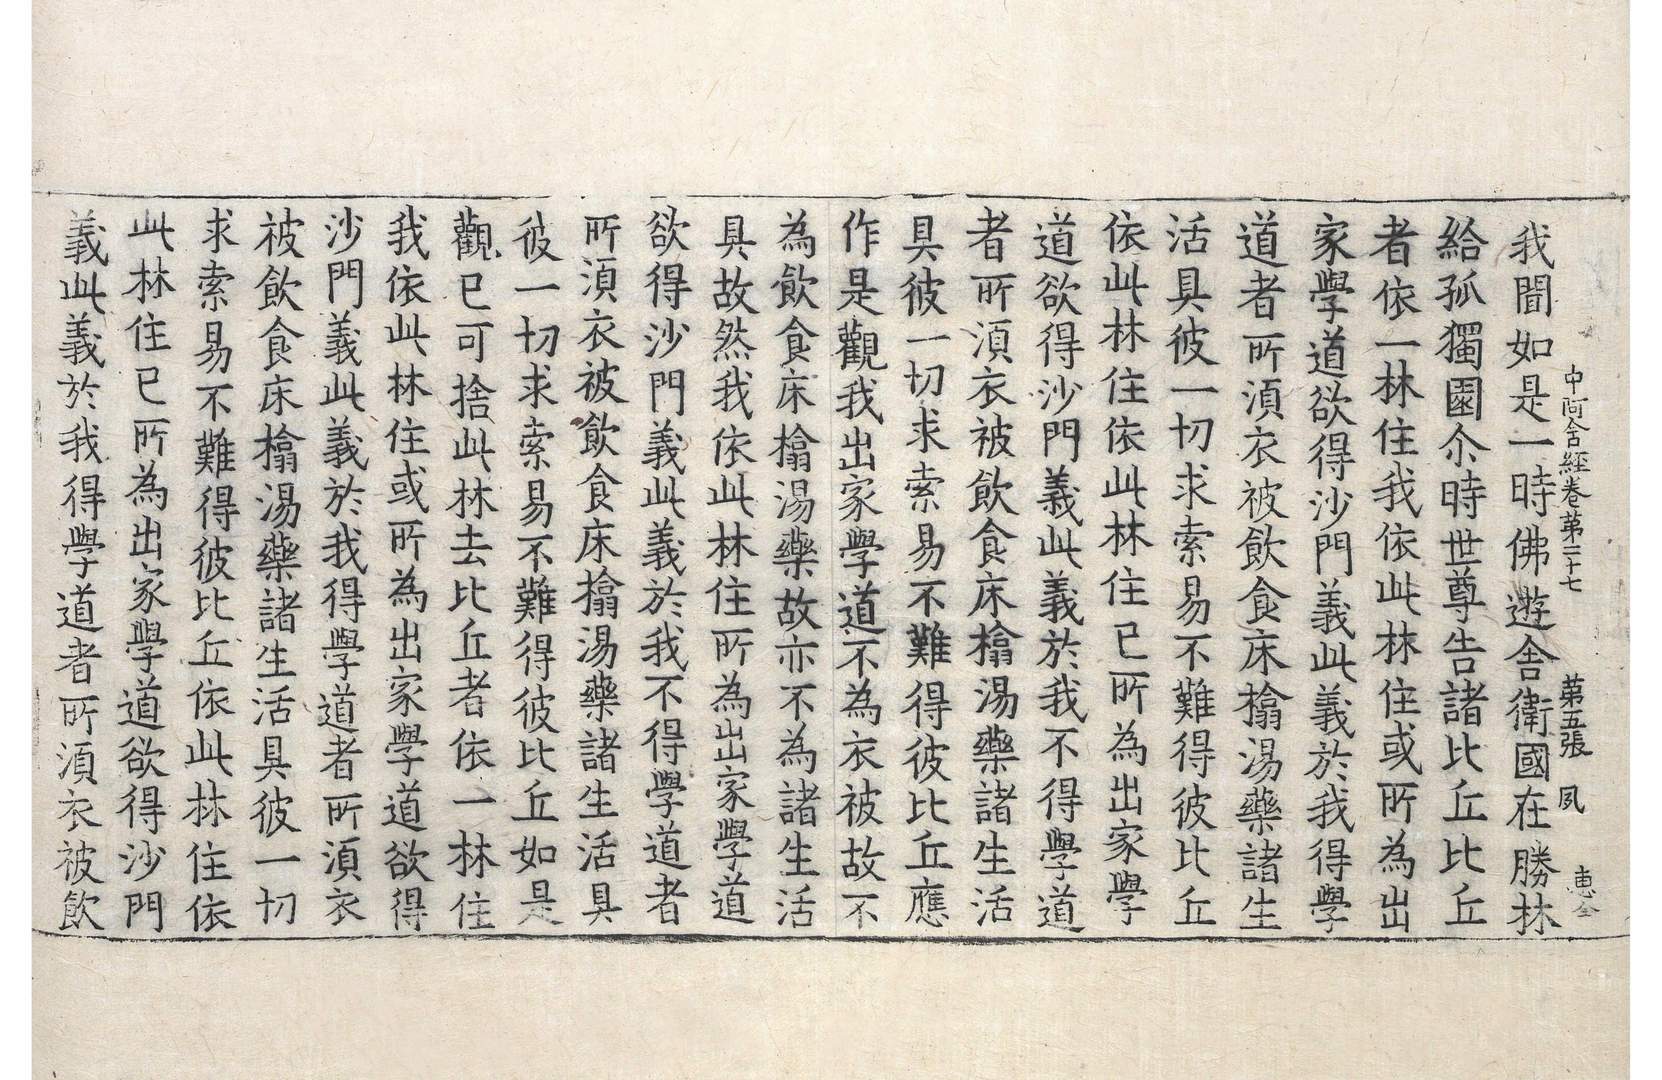 中阿含經卷第二十七　第五張　夙　惠全
我聞如是一時佛遊舍衛國在勝林
給孤獨園尒時世尊告諸比丘比丘
者依一林住我依此林住或所為出
家學道欲得沙門義此義於我得學
道者所湏衣被飲食床榻湯藥諸生
活具彼一切求索易不難得彼比丘
依此林住依此林住已所為出家學
道欲得沙門義此義於我不得學道
者所湏衣被飲食床榻湯藥諸生活
具彼一切求索易不難得彼比丘應
作是觀我出家學道不為衣被故不
為飲食床榻湯藥故亦不為諸生活
具故然我依此林住所為出家學道
欲得沙門義此義於我不得學道者
所湏衣被飲食床榻湯藥諸生活具
彼一切求索易不難得彼比丘如是
觀已可捨此林去比丘者依一林住
我依此林住或所為出家學道欲得
沙門義此義於我得學道者所湏衣
被飲食床榻湯藥諸生活具彼一切
求索易不難得彼比丘依此林住依
此林住已所為出家學道欲得沙門
義此義於我得學道者所湏衣被飲